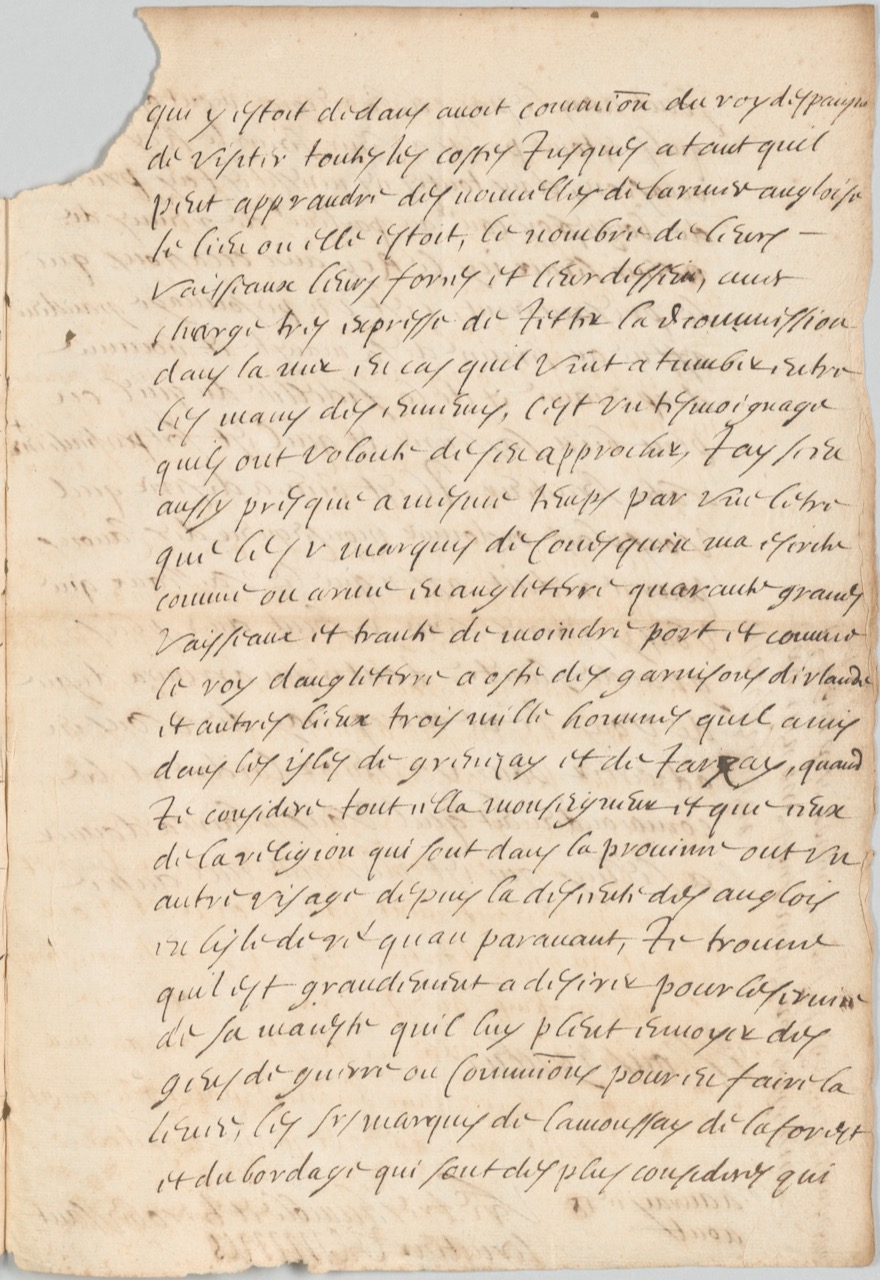 qui y estoit dedans avoit commiōn du roy despaigne
de visiter toutes les costes Jusques a tant quil
peut apprandre des nouvelles de larmee angloise
le lieu ou elle estoit, le nombre de lieurs –
vaisseaux lieurs forces et lieur dessein, avec
charge tres expresse de Jetter la commission
dans la mer en cas quil vint a tumber entre
les mains des ennemis, cest un tesmoignage
quils ont volonte de sen approcher, Jay sceu
aussy presque a mesme temps par une letre
que le sr marquis de Couesquin ma escrite
comme on arme en angleterre quarante grands
vaisseaux et trante de moindre port et comme
le roy dangleterre a oste des garnisons dirlande
et autres lieux trois mille hommes quil a mis
dans les isles de grenezay et de Jarzay, quand
Je considere tout cella monseigneur et que ceux
de la religion qui sont dans la province ont un
autre visage depuis la descente des anglois
en lisle de ré quau paravant, Je trouve
quil est grandement a desirer pour le service
de sa maieste quil luy pleut envoyer des
gens de guerre ou Commiōns pour en faire la
levee, les srs marquis de lamoussay de la forest
et du bordage qui sont des plus consideres qui